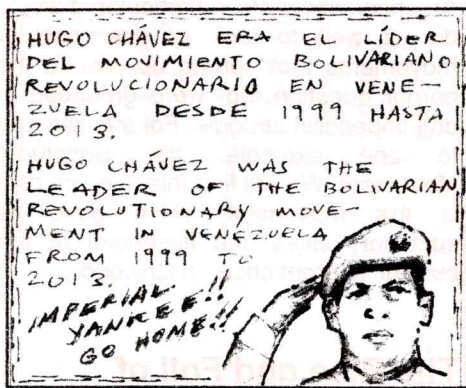 HUGO CHÁVEZ ERA EL LÍDER
DEL MOVIMIENTO BOLIVARIANO
REVOLUCIONARIO EN VENE-
ZUELA DESDE 1999 HASTA
2013.
HUGO CHÁVEZ WAS THE
LEADER OF THE BOLIVARIAN
REVOLUTIONARY MOVE-
MENT IN VENEZUELA
FROM 1999 TO
2013.
IMPERIAL
YANKEE!!
GO HOME!!